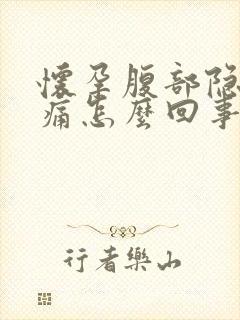 懷孕腹部隐
痛怎麽回事
行者樂山